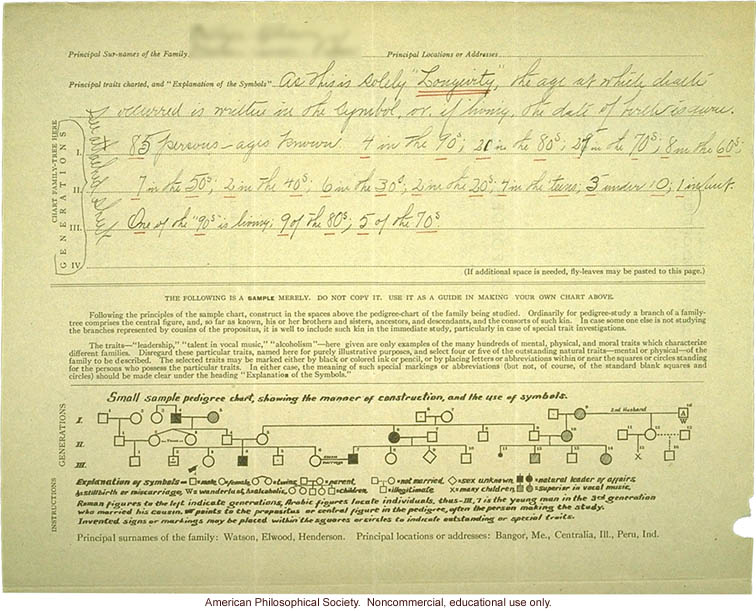 Principal Sur-names of the Family Principal Locations or Addresses
Principal traits charted, and "Explanation of the Symbols" As this is solely "Longevity", the age at which death
occurred is written in the symbol, or, if living, the date of birth is given.
CHART FAMILY-TREE HERE
GENERATIONS
I. 85 persons - ages known. 4 in the 90s; in the 80s; in the 70s; 8 in the 60s;
II. 7 in the 50s; 2 in the 40s; 6 in the 30s; 2 in the 20s; 4 in the teens; 3 under 10; 1 infant.
III. One of the "90s" is living; 9 of the 80s; 5 of the 70s.
IV.
(If additional space is needed, fly-leaves may be pasted to this page.)
THE FOLLOWING IS A SAMPLE MERELY. DO NOT COPY IT. USE IT AS A GUIDE IN MAKING YOUR OWN CHART ABOVE.
Following the principles of the sample chart, construct in the spaces above the pedigree-chart of the family being studied. Ordinarily for pedigree-study a branch of a family-
tree comprises the central figure, and, so far as known, his or her brothers and sisters, ancestors, and descendants, and the consorts of such kin. In case some one else is not studying
the branches represented by cousins of the propositus, it is well to include such kin in the immediate study, particularly in case of special trait investigations.
The traits—"leadership," "talent in vocal music," "alcoholism"—here given are only examples of the many hundreds of mental, physical, and moral traits which characterize
different families. Disregard these particular traits, named here for purely illustrative purposes, and select four or five of the outstanding natural traits—mental or physical—of the
family to be described. The selected traits may be marked either by black or colored ink or pencil, or by placing letters or abbreviations within or near the squares or circles standing
for the persons who possess the particular traits. In either case, the meaning of such special markings or abbreviations (but not, of course, of the standard blank squares and
circles) should be made clear under the heading "Explanation of the Symbols."
Small sample pedigree chart, showing the manner of construction, and the use of symbols.
INSTRUCTIONS
GENERATIONS
I. 1 2 3 4 5 6 7 8 9 2nd Husband 10 A W
II. 1 2 3 4 5 6 7 8 9 10 11 12 13 14
III. 1 2 3 4 5 6 7 8 9 10 11 12 13 14 15 16
Explanation of symbols— =male =female =twins =parent =not married =sex unknown =natural leader of affairs.
=stillbirth or miscarriage. W=wanderlust, A=alcoholic, =children =illegitimate x=many children =superior in vocal music.
Roman figures to the left indicate generations, Arabic figures locate individuals, thus-III, 7 is the young man in the 3rd generation
who married his cousin. points to the propositus or central figure in the pedigree, often the person making the study.
Invented signs or markings may be placed within the squares or circles to indicate outstanding or special traits.
Principal surnames of the family: Watson, Elwood, Henderson. Principal locations or addresses: Bangor, Me., Centralia, Ill., Peru, Ind.
American Philosophical Society. Noncommercial, educational use only.